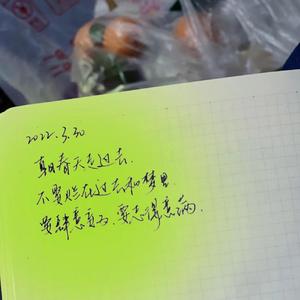 2022.3.30
朝春天走过去,
不要烂在过去和梦里
要肆意 要志得意满.